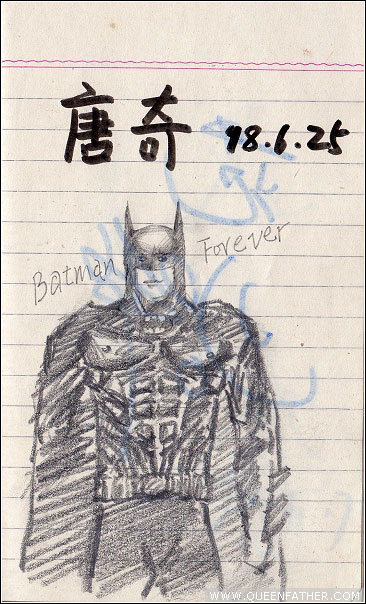 唐奇 98.6.25
Batman Forever
WWW.QUEENFATHER.COM